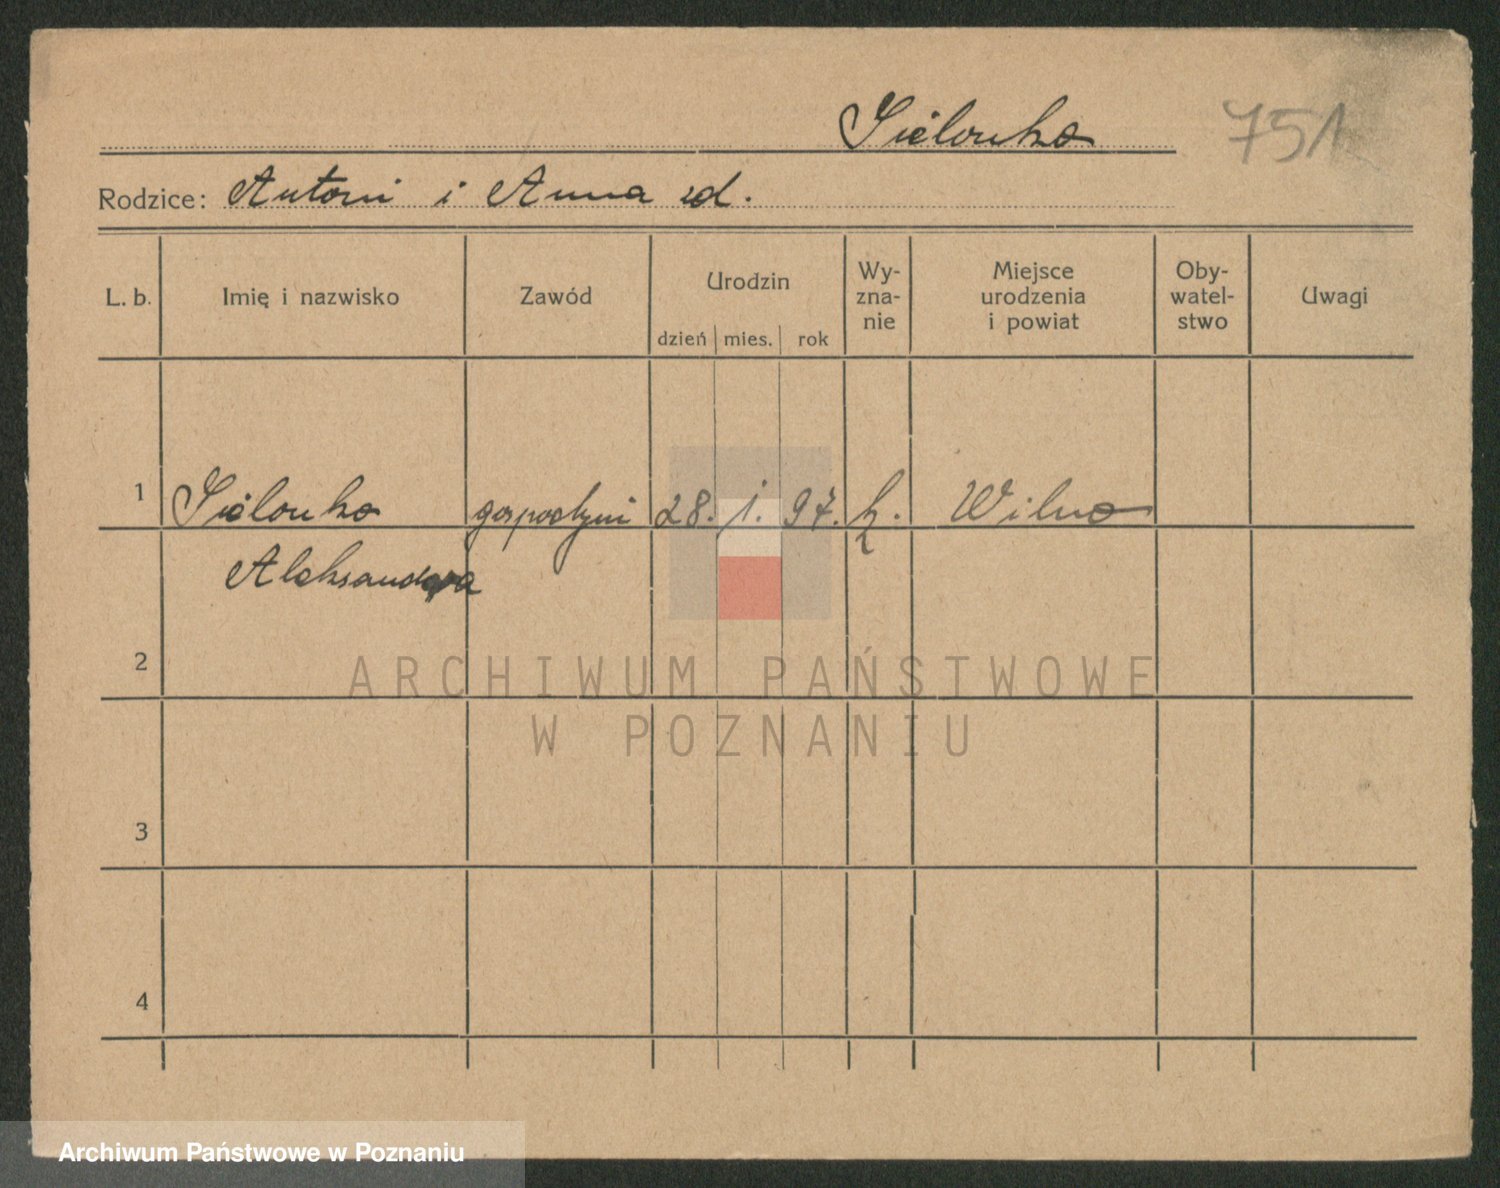 Sielonko 751
Rodzice: Antoni i Anna zd.
L. b. Imię i nazwisko Zawód Urodzin dzień mies. rok Wy- zna- nie Miejsce urodzenia i powiat Oby- watel- stwo Uwagi
1 Sielonko gospodyni 28. 1. 97. k. Wilno
Aleksandra
2
ARCHIWUM PAŃSTWOWE
W POZNANIU
3
4
Archiwum Państwowe w Poznaniu